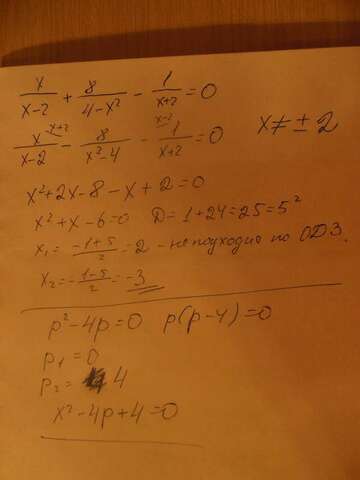 x/(x-2) + 8/(4-x²) - 1/(x+2) = 0
x^(x+2)/(x-2) - 8/(x²-4) - 1^(x-2)/(x+2) = 0 x ≠ ± 2
x²+2x-8-x+2=0
x²+x-6=0 D=1+24=25=5²
x₁ = (-1+5)/2 = 2 - не подходит по ОДЗ.
x₂ = (-1-5)/2 = -3
p²-4p=0 p(p-4)=0
p₁=0
p₂= 4
x²-4p+4=0